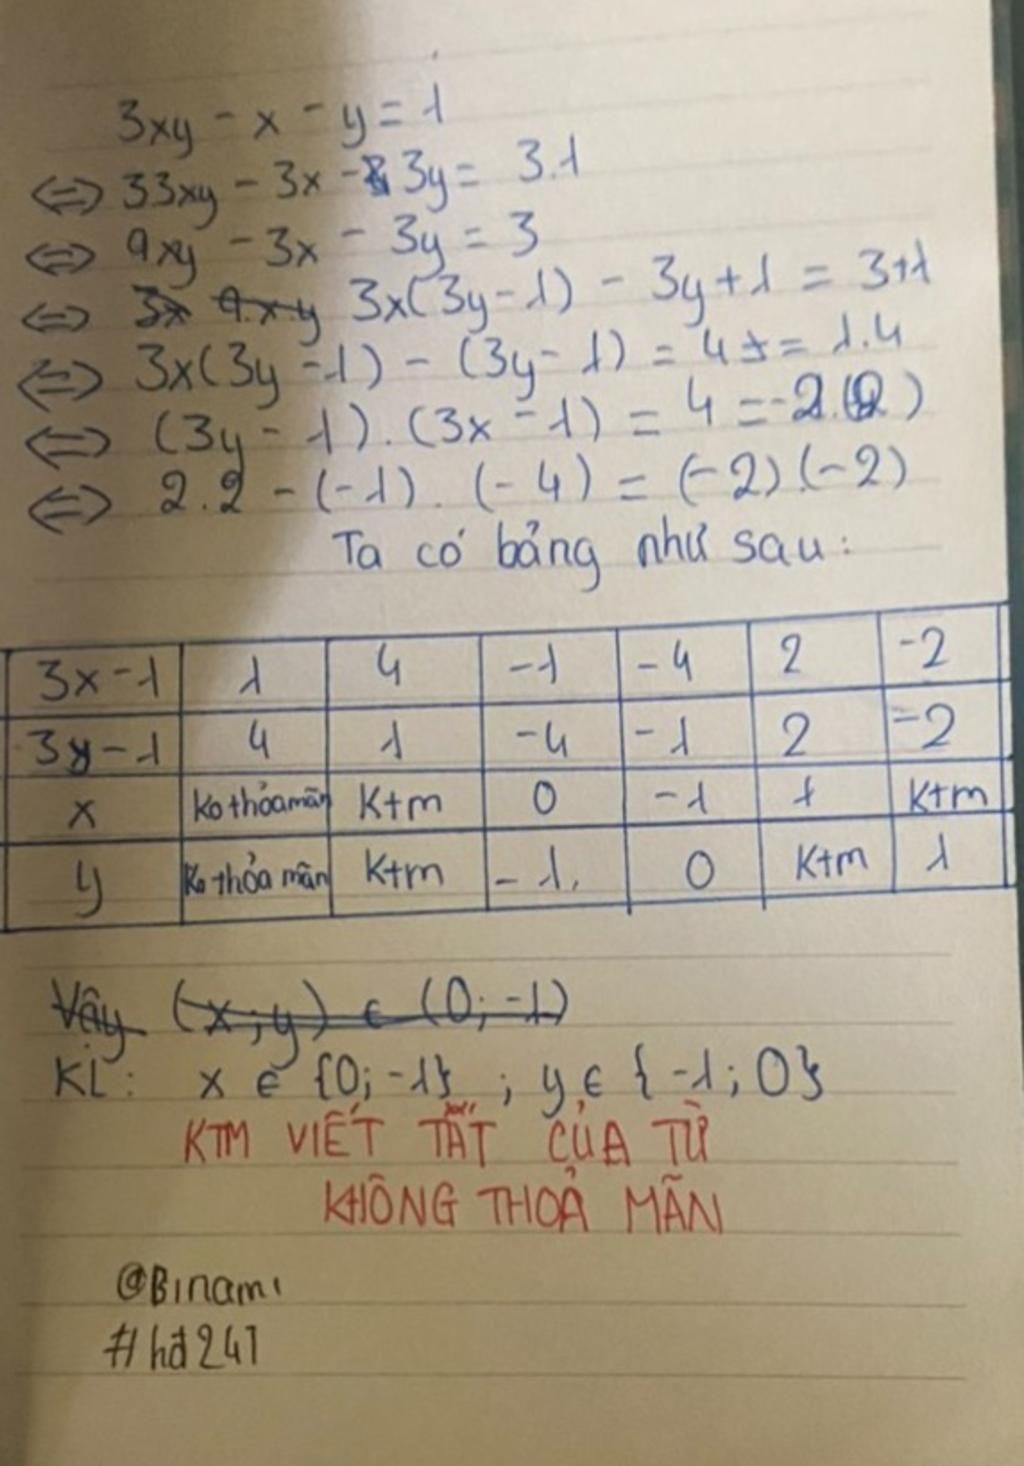 3xy - x - y = 1
⇔ 33xy - 3x - 3y = 3.1
⇔ 9xy - 3x - 3y = 3
⇔ 3x(3y-1) - 3y+1 = 3+1
⇔ 3x(3y-1) - (3y-1) = 4 = 1.4
⇔ (3y-1).(3x-1) = 4 = -2.(2)
⇔ 2.2 - (-1).(-4) = (-2).(-2)
Ta có bảng như sau:
3x-1 1 4 -1 -4 2 -2
3y-1 4 1 -4 -1 2 -2
x Ko thỏa mãn Ktm 0 -1 1 Ktm
y Ko thỏa mãn Ktm -1. 0 Ktm 1
Vậy (x;y) ∈ (0;-1)
KL: x ∈ {0;-1} ; y ∈ {-1;0}
KTM VIẾT TẮT CỦA TỪ
KHÔNG THOẢ MÃN
@Binami
#hđ247